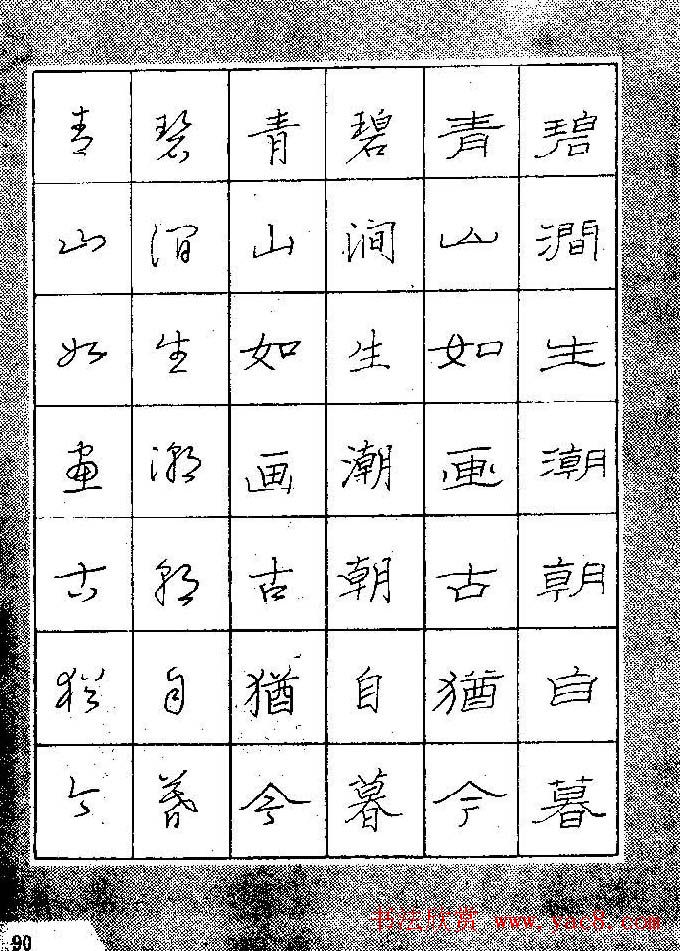 碧澗生潮朝自暮
青山如画古猶今
碧涧生潮朝自暮
青山如画古猶今
碧涧生潮朝自暮
青山如畫古猶今
90
书法欣赏 www.yac8.com